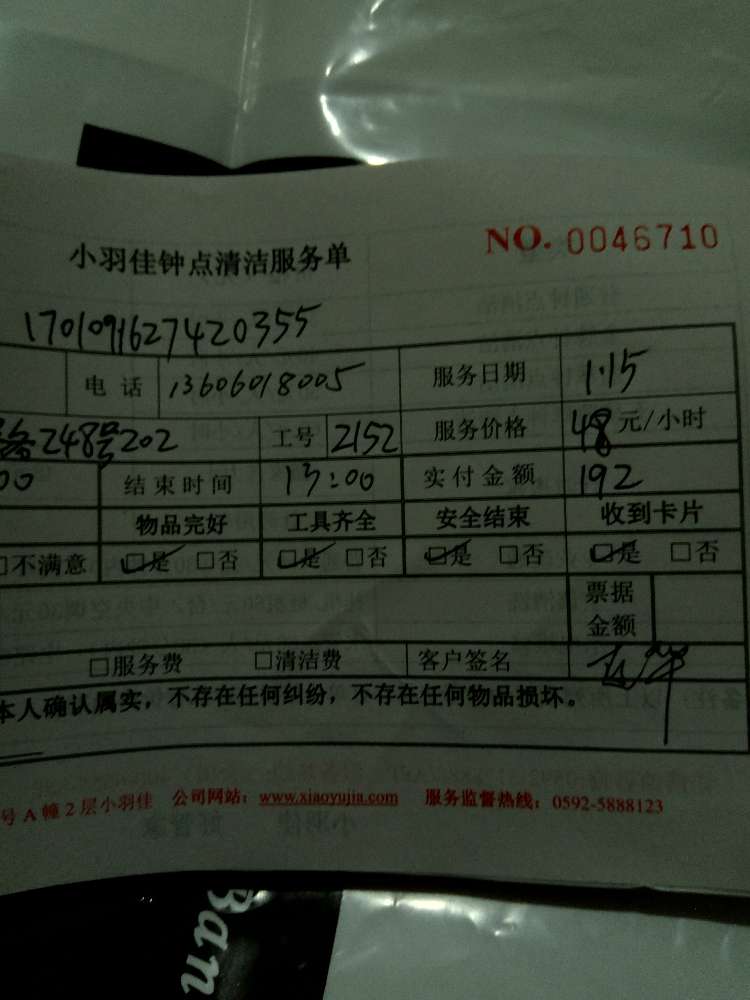 NO. 0046710
小羽佳钟点清洁服务单
1701091627420355
电话 13606018005 服务日期 1.15
路248号202 工号 2152 服务价格 48元/小时
00 结束时间 13:00 实付金额 192
物品完好 工具齐全 安全结束 收到卡片
□不满意 □是 □否 □是 □否 □是 □否 □是 □否
票据金额
□服务费 □清洁费 客户签名
本人确认属实，不存在任何纠纷，不存在任何物品损坏。
号A幢2层小羽佳 公司网站：www.xiaoyujia.com 服务监督热线：0592-5888123
Ban